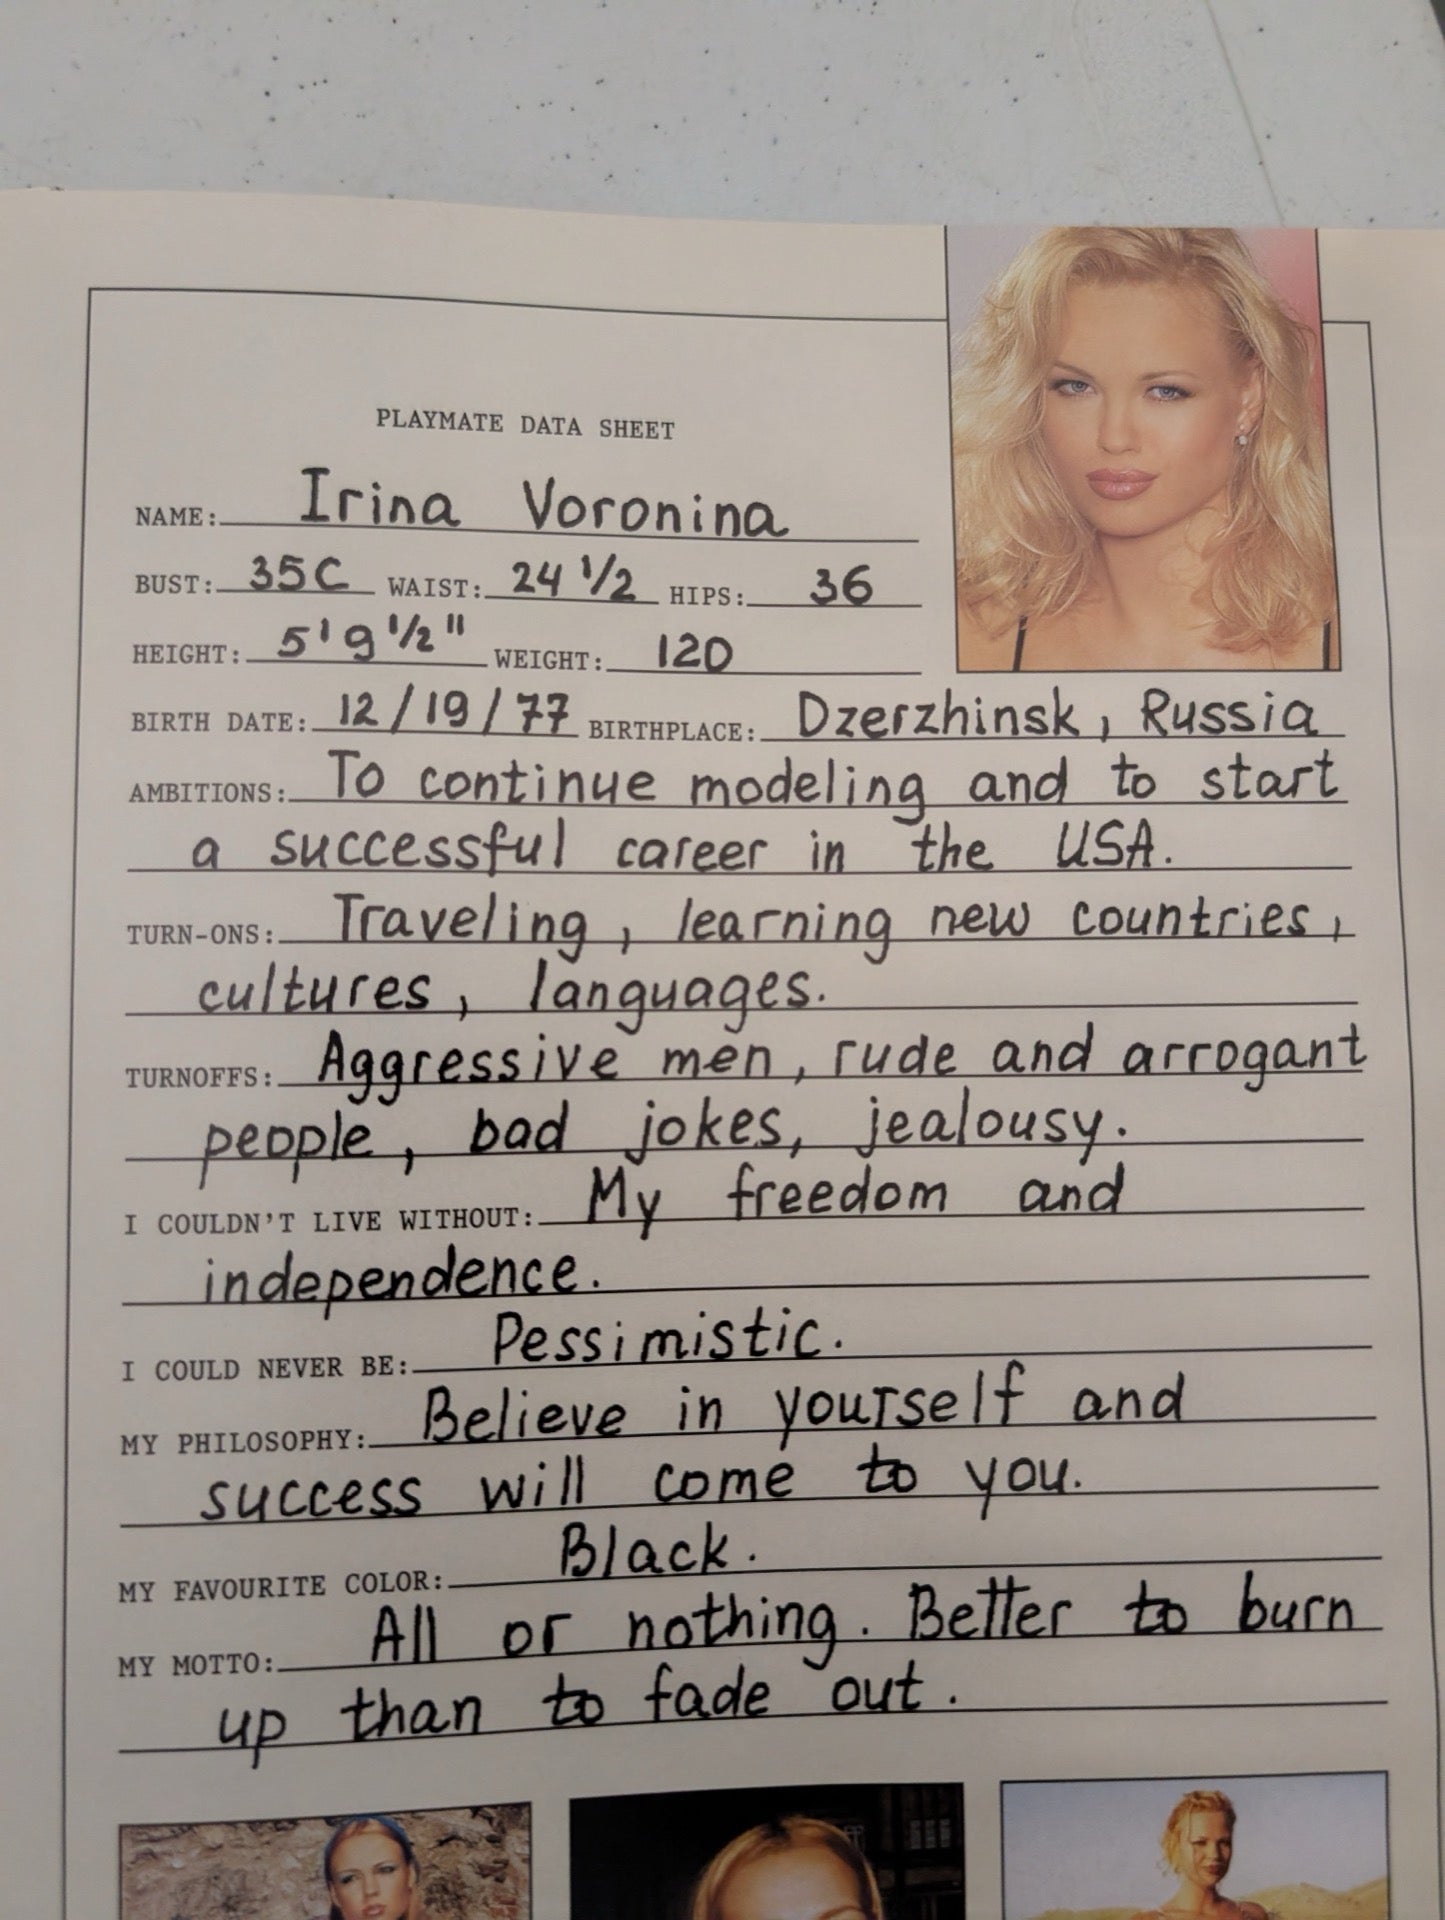 PLAYMATE DATA SHEET
NAME: Irina Voronina
BUST: 35C WAIST: 24 1/2 HIPS: 36
HEIGHT: 5'9 1/2" WEIGHT: 120
BIRTH DATE: 12/19/77 BIRTHPLACE: Dzerzhinsk, Russia
AMBITIONS: To continue modeling and to start
a successful career in the USA.
TURN-ONS: Traveling, learning new countries,
cultures, languages.
TURNOFFS: Aggressive men, rude and arrogant
people, bad jokes, jealousy.
I COULDN'T LIVE WITHOUT: My freedom and
independence.
I COULD NEVER BE: Pessimistic.
MY PHILOSOPHY: Believe in yourself and
success will come to you.
MY FAVOURITE COLOR: Black.
MY MOTTO: All or nothing. Better to burn
up than to fade out.